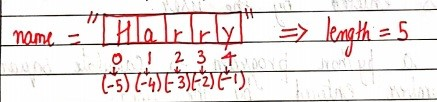 name = "Harry" ⇒ length = 5
0 1 2 3 4
(-5) (-4) (-3) (-2) (-1)